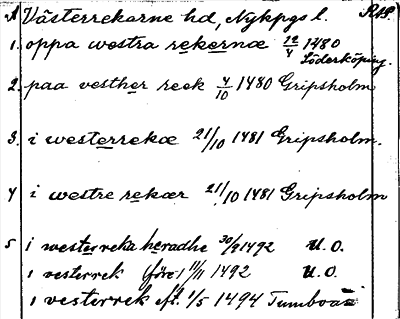 A Västerrekarne hd, Nykpgs l. RAP.
1. oppa westra rekernæ 12/4 1480 Söderköping.
2. paa vesther reek 4/10 1480 Gripsholm
3. i westerrekæ 21/10 1481 Gripsholm.
4 i westre rekær 21/10 1481 Gripsholm
5 i westerreka heradhe 30/9 1492 U. O.
i vesterrek före 11/11 1492 U. O.
i vesterrek eft. 1/5 1494 Tumboaa